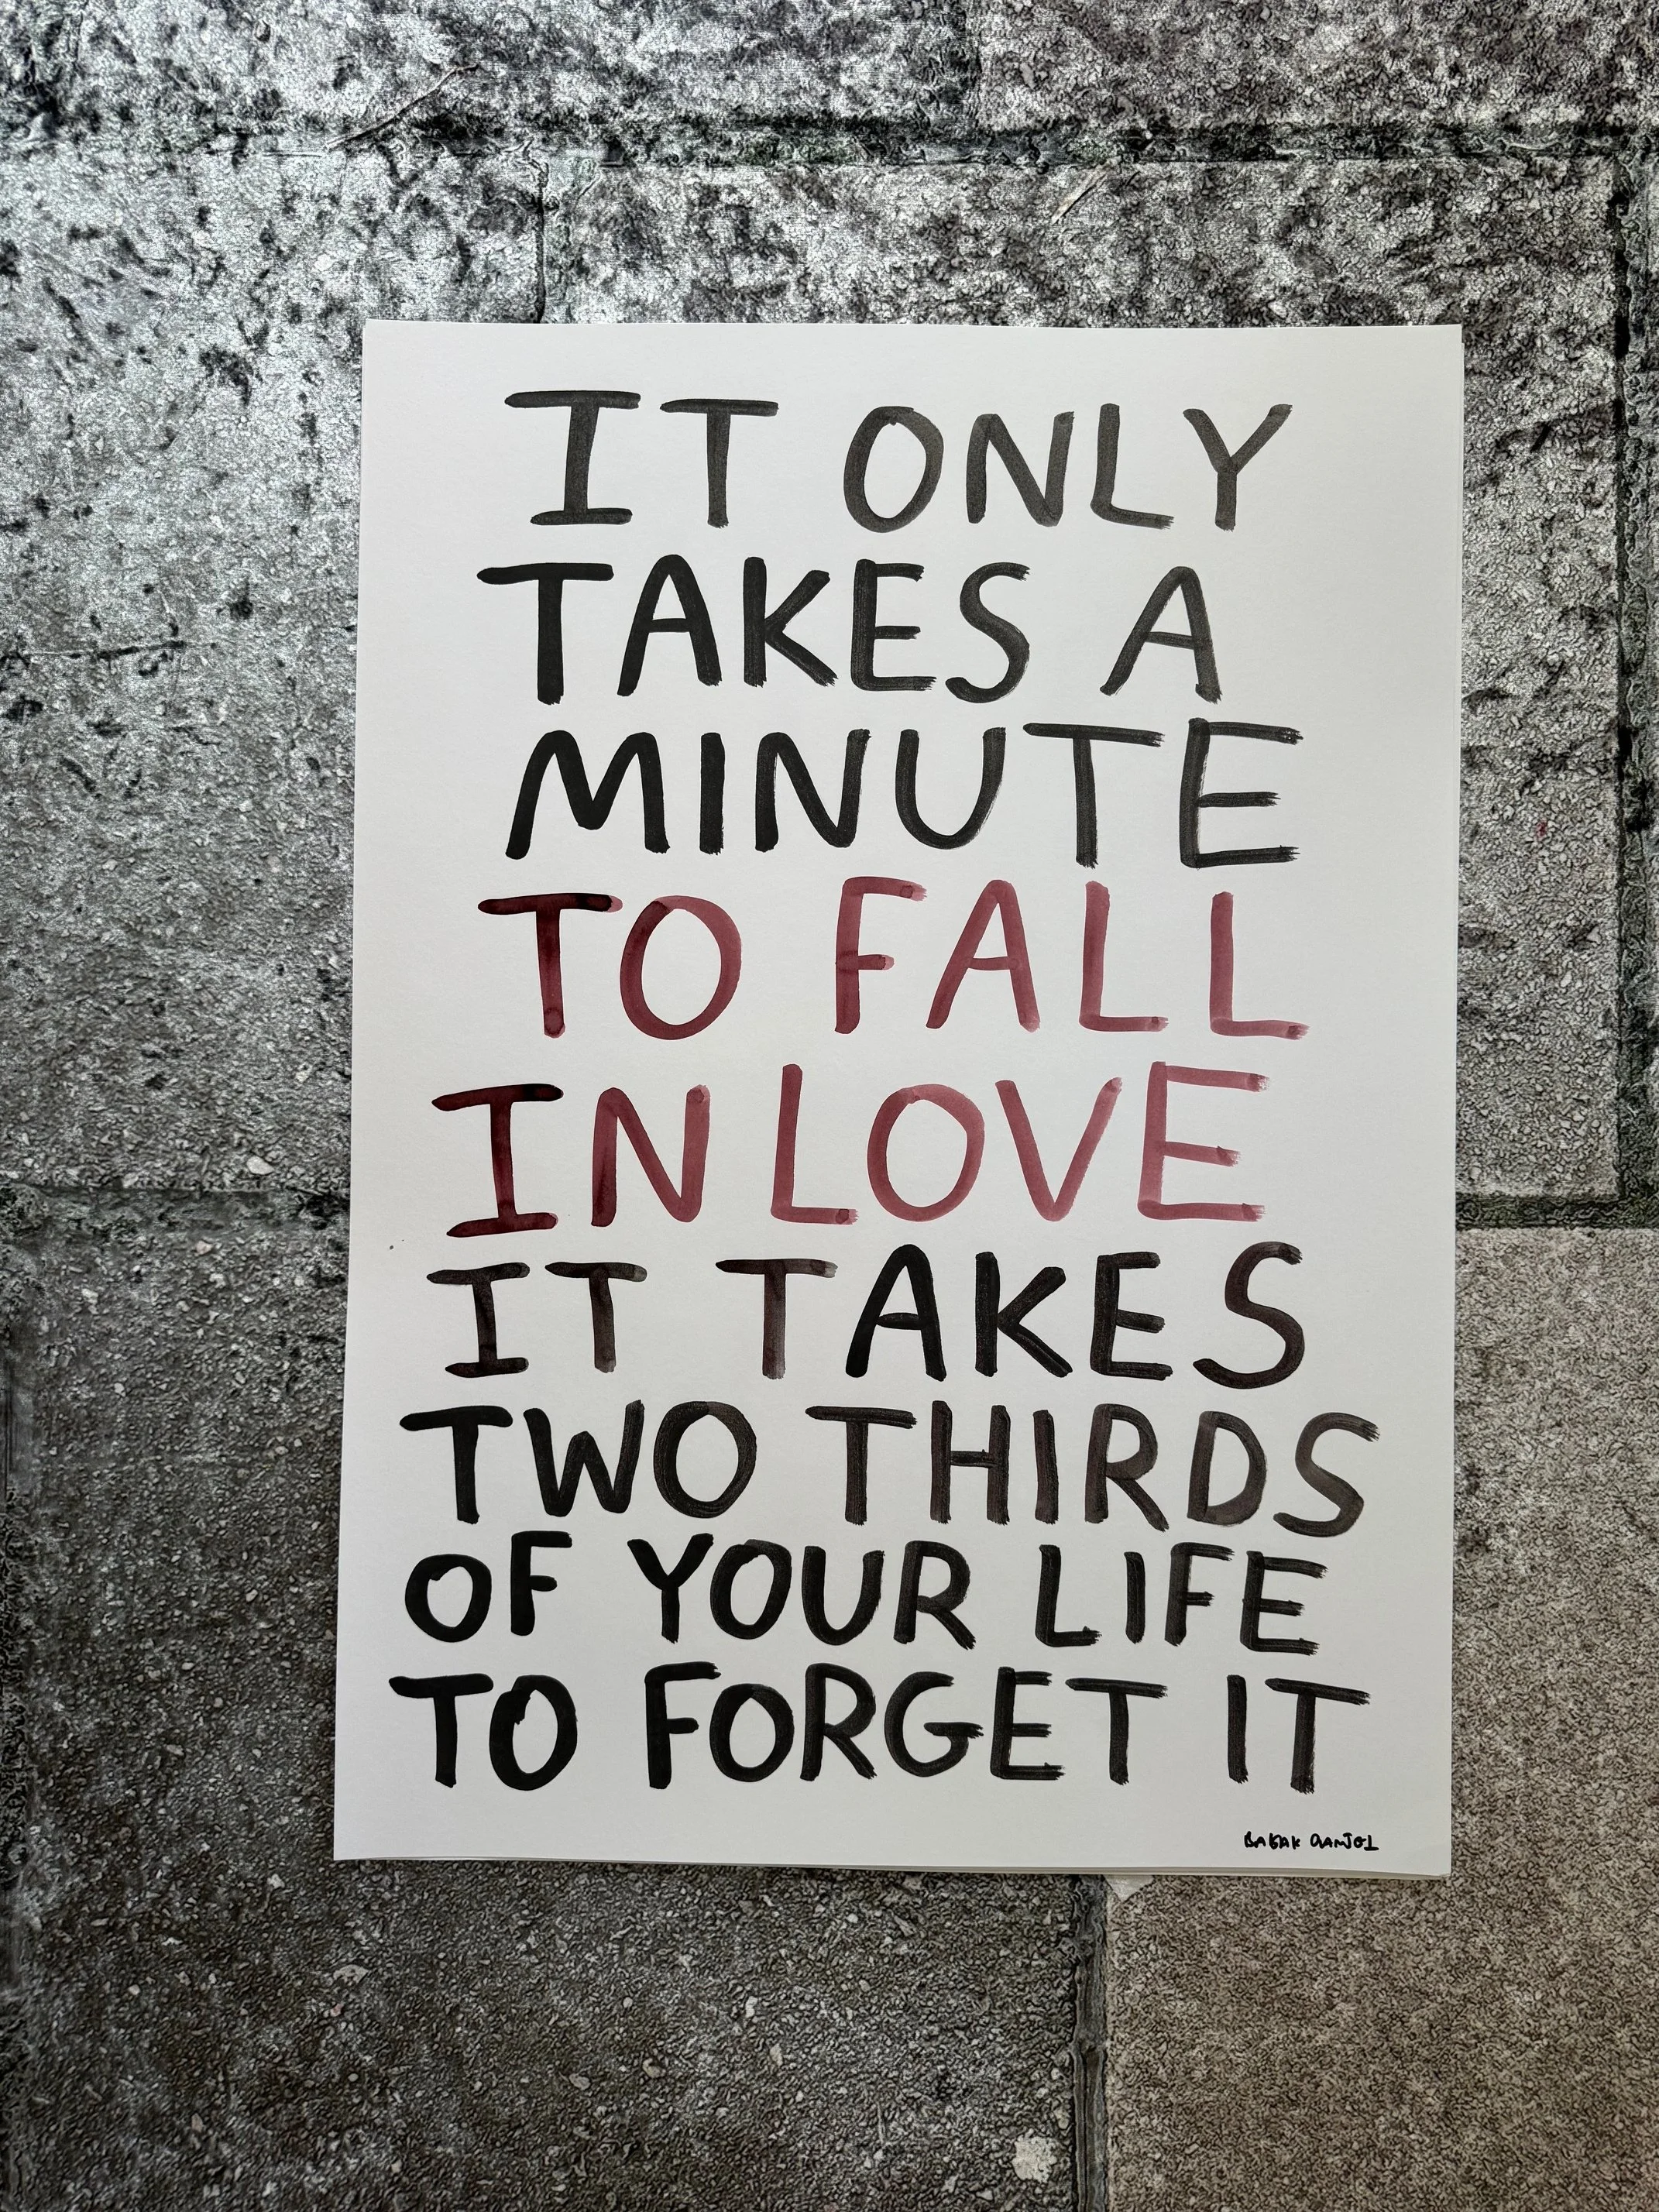 IT ONLY
TAKES A
MINUTE
TO FALL
IN LOVE
IT TAKES
TWO THIRDS
OF YOUR LIFE
TO FORGET IT
BABAK GANJEI